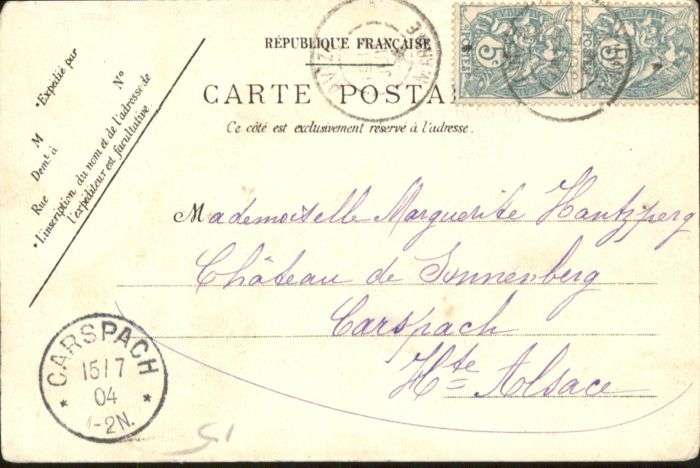 RÉPUBLIQUE FRANÇAISE
CARTE POSTA
Ce côté est exclusivement réservé à l'adresse.
Expédié par
No
M
Demt à
Rue
L'inscription du nom et de l'adresse de
l'expéditeur est facultative
5c
POSTES
5c
POSTES
Mademoiselle Marguerite Hantzperg
Château de Sonnenberg
Carspach
Hte Alsace
CARSPACH
15/7
04
1-2N.
15